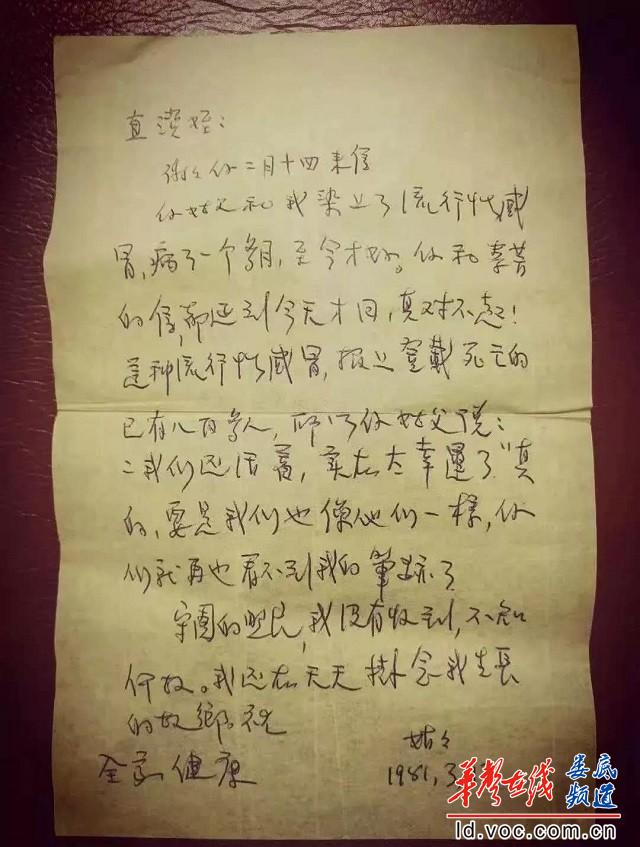 直濆姪：
谢々你二月十四来信
你姑父和我染上了流行性感
冒，病了一个多月，至今才好。你和
的信，都迟到今天才回，真对不起！
这种流行性感冒，报上登载死亡的
已有八百多人，所以你姑父说：
“我们还活着，实在太幸运了”真
的，要是我们也像他们一样，你
们就再也看不到我的筆跡了
宇園的照片，我没有收到，不知
何故。我还在天天掛念我生長
的故鄉。祝
全家健康
姑々
1981,3
华声在线
娄底
频道
ld.voc.com.cn